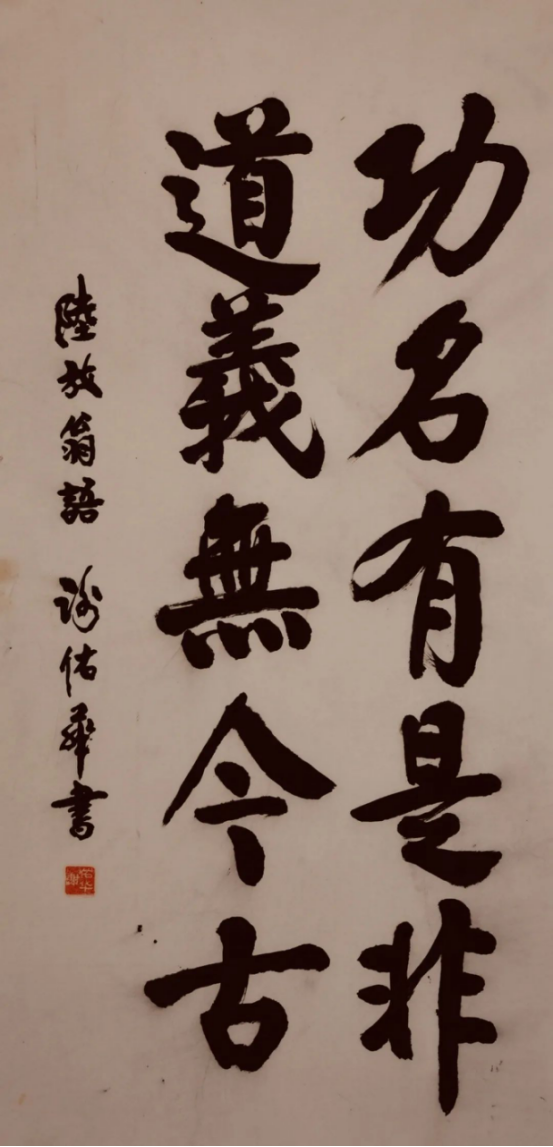 功名有是非
道義無今古
陸放翁語 謝佑華書